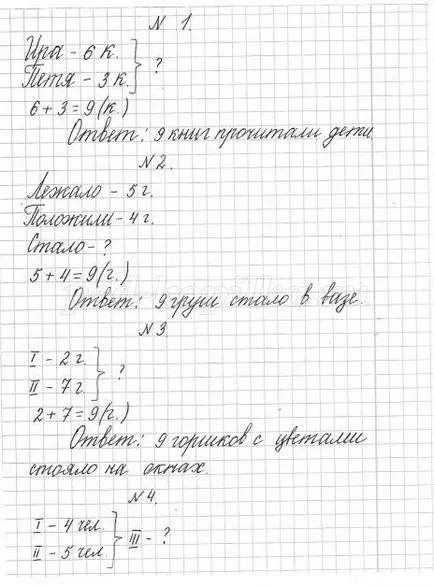 N 1.
Ира – 6 к.
Петя – 3 к. } ?
6 + 3 = 9 (к.)
Ответ: 9 книг прочитали дети.
N 2.
Лежало – 5 г.
Положили – 4 г.
Стало – ?
5 + 4 = 9 (г.)
Ответ: 9 груш стало в вазе.
N 3.
I – 2 г.
II – 7 г. } ?
2 + 7 = 9 (г.)
Ответ: 9 горшков с цветами
стояло на окнах.
N 4.
I – 4 чел.
II – 5 чел. } III – ?